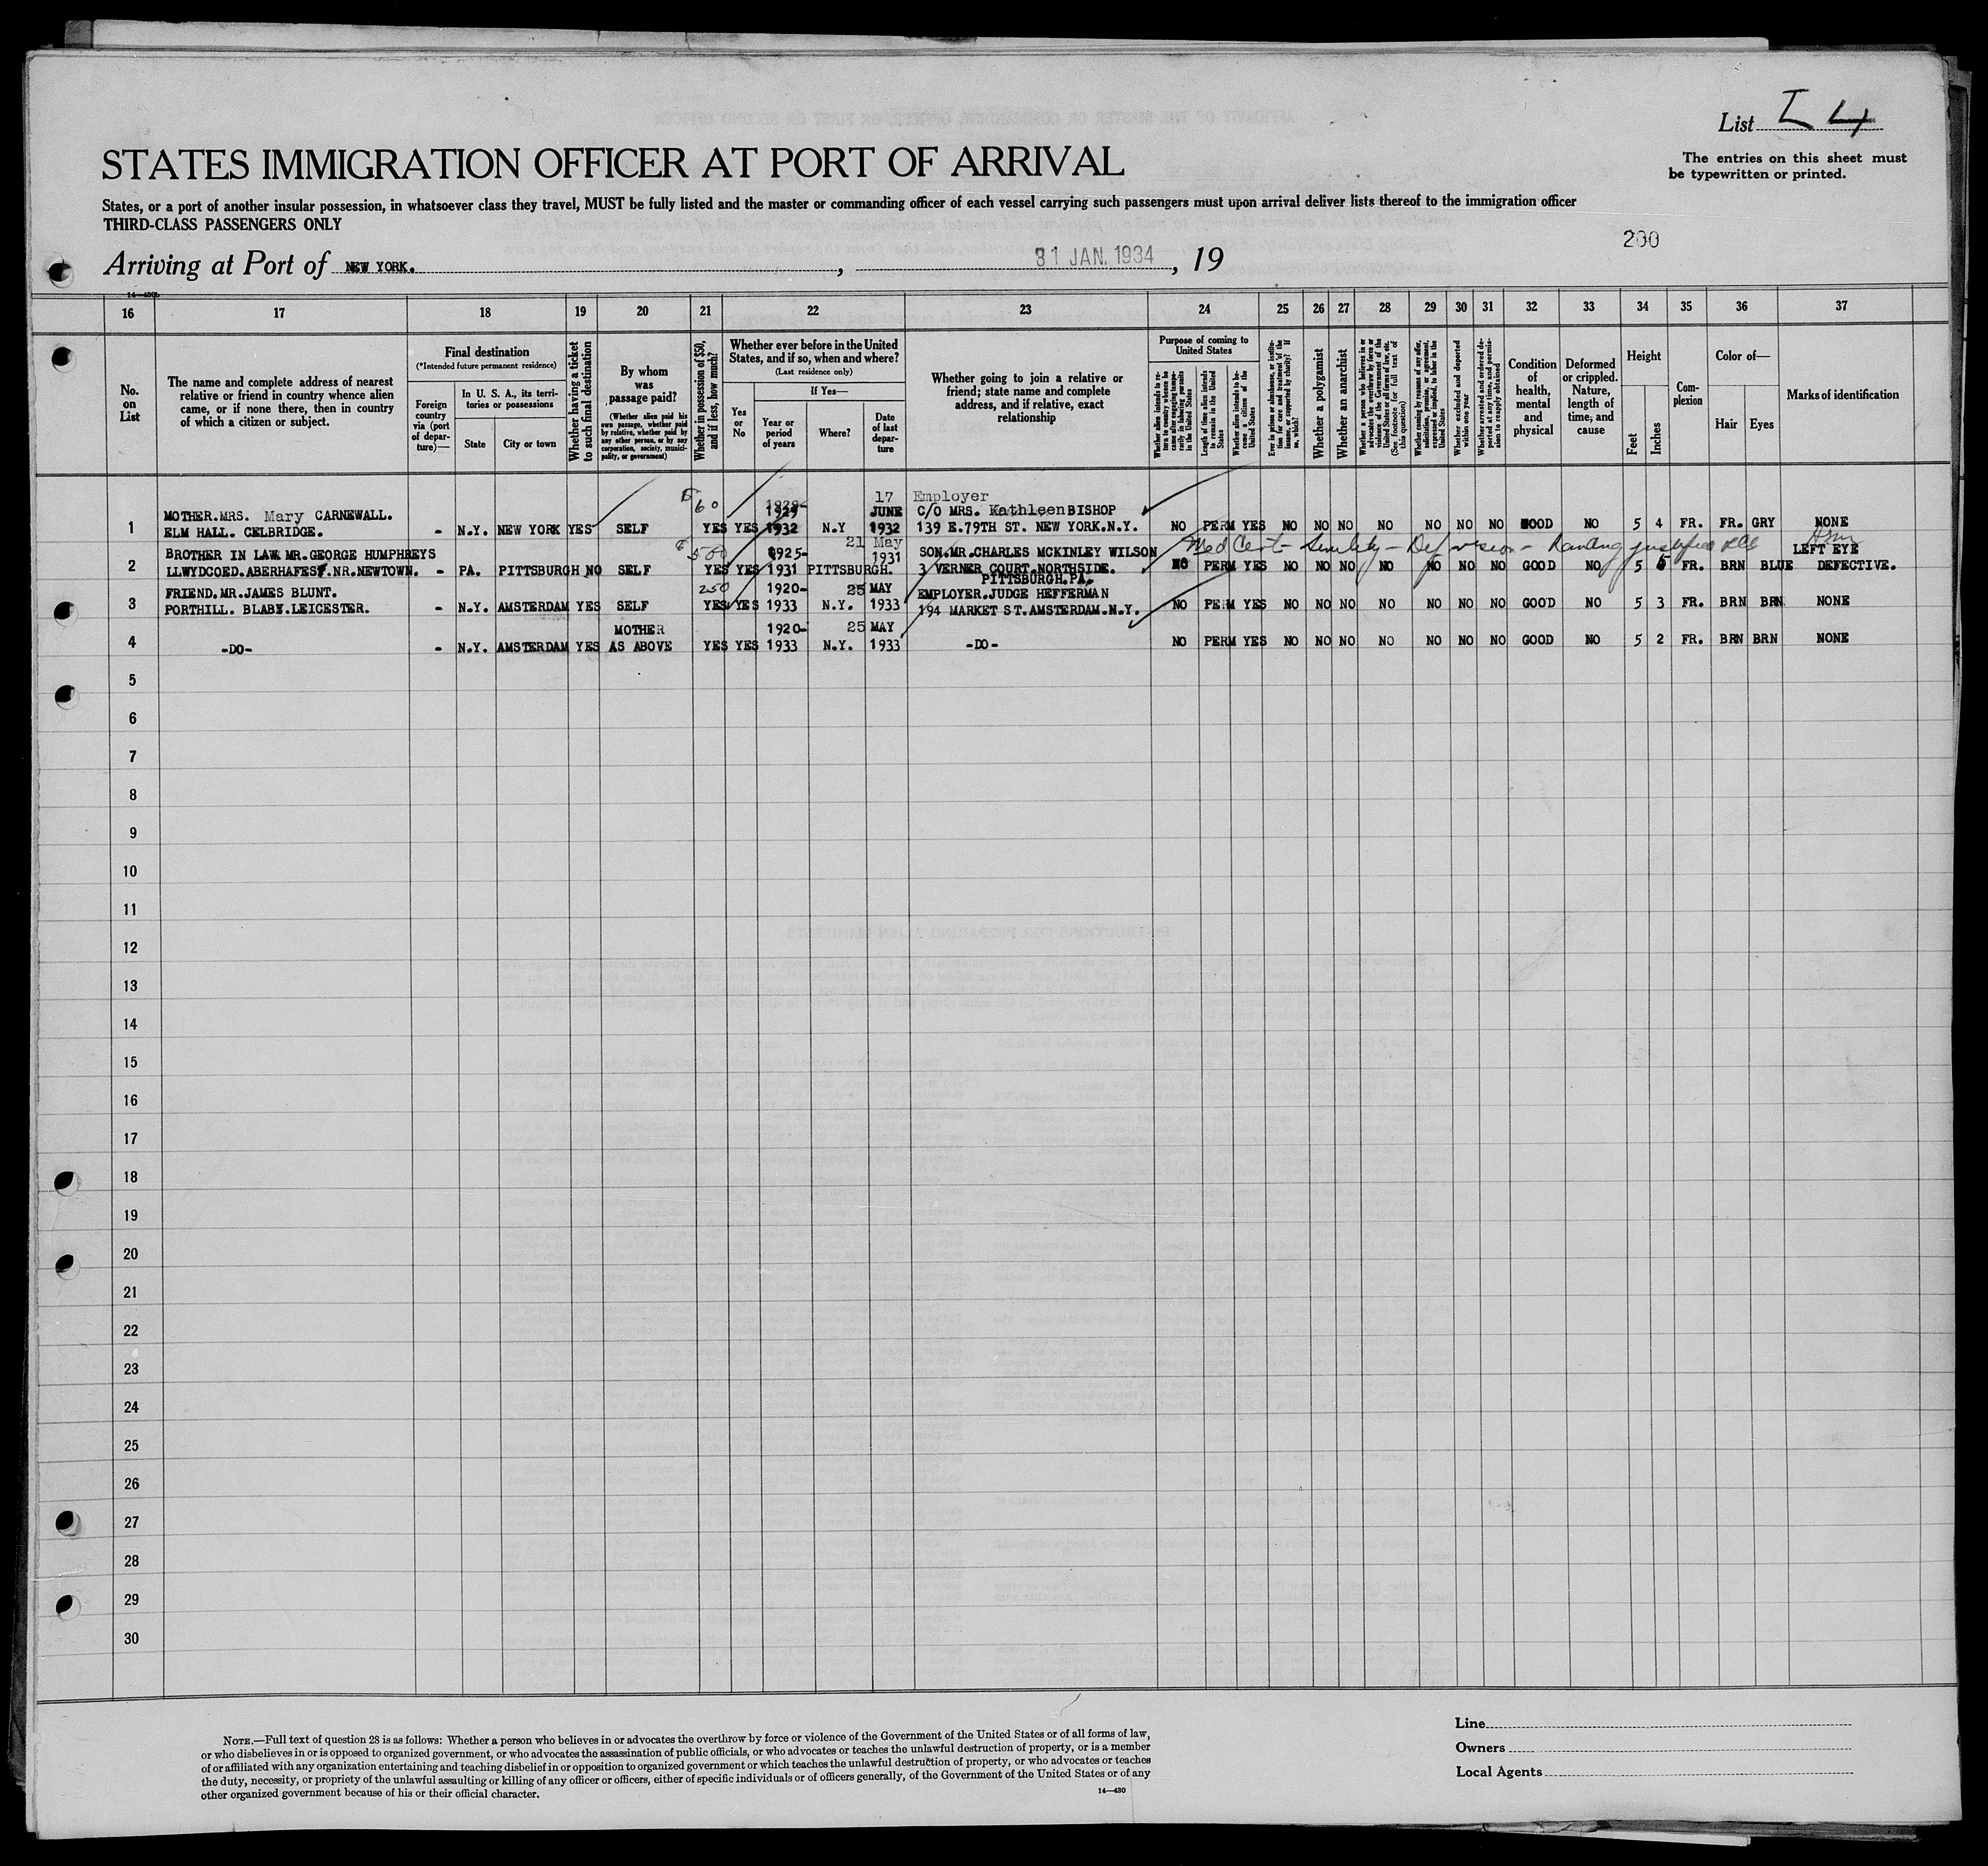 List I 4
The entries on this sheet must
be typewritten or printed.
STATES IMMIGRATION OFFICER AT PORT OF ARRIVAL
States, or a port of another insular possession, in whatsoever class they travel, MUST be fully listed and the master or commanding officer of each vessel carrying such passengers must upon arrival deliver lists thereof to the immigration officer
THIRD-CLASS PASSENGERS ONLY
200
Arriving at Port of NEW YORK. , 31 JAN. 1934 , 19
14—430b
16 17 18 19 20 21 22 23 24 25 26 27 28 29 30 31 32 33 34 35 36 37
No.
on
List
The name and complete address of nearest
relative or friend in country whence alien
came, or if none there, then in country
of which a citizen or subject.
Final destination
(*Intended future permanent residence)
Foreign
country
via (port
of depar-
ture)—
In U. S. A., its terri-
tories or possessions
State
City or town
Whether having a ticket
to such final destination
By whom
was
passage paid?
(Whether alien paid his
own passage, whether paid
by relative, whether paid by
any other person, or by any
corporation, society, munici-
pality, or government)
Whether in possession of $50,
and if less, how much?
Whether ever before in the United
States, and if so, when and where?
(Last residence only)
Yes
or
No
If Yes—
Year or
period
of years
Where?
Date
of last
depar-
ture
Whether going to join a relative or
friend; state name and complete
address, and if relative, exact
relationship
Purpose of coming to
United States
Whether alien intends to re-
turn to country whence he
came after engaging tempo-
rarily in laboring pursuits
in the United States
Length of time alien intends
to remain in the United
States
Whether alien intends to be-
come a citizen of the
United States
Ever in prison or almshouse, or institu-
tion for care and treatment of the
insane, or supported by charity? If
so, which?
Whether a polygamist
Whether an anarchist
Whether a person who believes in or
advocates the overthrow by force or
violence of the Government of the
United States or all forms of law, etc.
(See footnote for full text of
this question)
Whether coming by reason of any offer,
solicitation, promise, or agreement,
expressed or implied, to labor in the
United States
Whether excluded and deported
within one year
Whether arrested and ordered de-
ported at any time, and permis-
sion to reapply obtained
Condition
of
health,
mental
and
physical
Deformed
or crippled.
Nature,
length of
time, and
cause
Height
Feet
Inches
Com-
plexion
Color of—
Hair
Eyes
Marks of identification
60 17 Employer
MOTHER.MRS. Mary CARNEWALL. 1929 JUNE C/O MRS. Kathleen BISHOP
1 ELM HALL. CELBRIDGE. - N.Y. NEW YORK YES SELF YES YES 1932 N.Y 1932 139 E.79TH ST. NEW YORK.N.Y. NO PERM YES NO NO NO NO NO NO NO GOOD NO 5 4 FR. FR. GRY NONE
Med Cert - Senility - Def vision - Landing justified
BROTHER IN LAW. MR.GEORGE HUMPHREYS 500 1925- 21 May 1931 SON.MR.CHARLES MCKINLEY WILSON LEFT EYE
2 LLWYDCOED.ABERHAFESP.NR.NEWTOWN. - PA. PITTSBURGH NO SELF YES YES 1931 PITTSBURGH. 3 VERNER COURT.NORTHSIDE. NO PERM YES NO NO NO NO NO NO NO GOOD NO 5 5 FR. BRN BLUE DEFECTIVE.
PITTSBURGH.PA.
FRIEND.MR.JAMES BLUNT. 250 1920- 25 MAY EMPLOYER.JUDGE HEFFERMAN
3 PORTHILL. BLABY.LEICESTER. - N.Y. AMSTERDAM YES SELF YES YES 1933 N.Y. 1933 194 MARKET ST.AMSTERDAM.N.Y. NO PERM YES NO NO NO NO NO NO NO GOOD NO 5 3 FR. BRN BRN NONE
MOTHER 1920- 25 MAY
4 -DO- - N.Y. AMSTERDAM YES AS ABOVE YES YES 1933 N.Y. 1933 -DO- NO PERM YES NO NO NO NO NO NO NO GOOD NO 5 2 FR. BRN BRN NONE
5
6
7
8
9
10
11
12
13
14
15
16
17
18
19
20
21
22
23
24
25
26
27
28
29
30
NOTE.—Full text of question 28 is as follows: Whether a person who believes in or advocates the overthrow by force or violence of the Government of the United States or of all forms of law,
or who disbelieves in or is opposed to organized government, or who advocates the assassination of public officials, or who advocates or teaches the unlawful destruction of property, or is a member
of or affiliated with any organization entertaining and teaching disbelief in or opposition to organized government or which teaches the unlawful destruction of property, or who advocates or teaches
the duty, necessity, or propriety of the unlawful assaulting or killing of any officer or officers, either of specific individuals or of officers generally, of the Government of the United States or of any
other organized government because of his or their official character.
14—430
Line
Owners
Local Agents